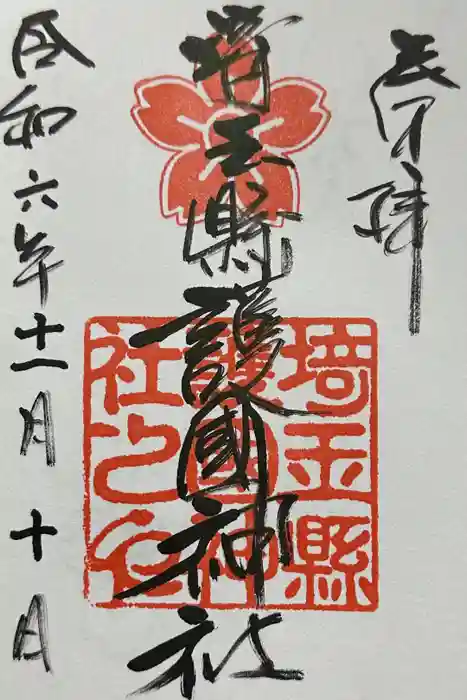 奉拝
埼玉縣護國神社
埼玉縣
護國神
社之印
令和六年十一月十日